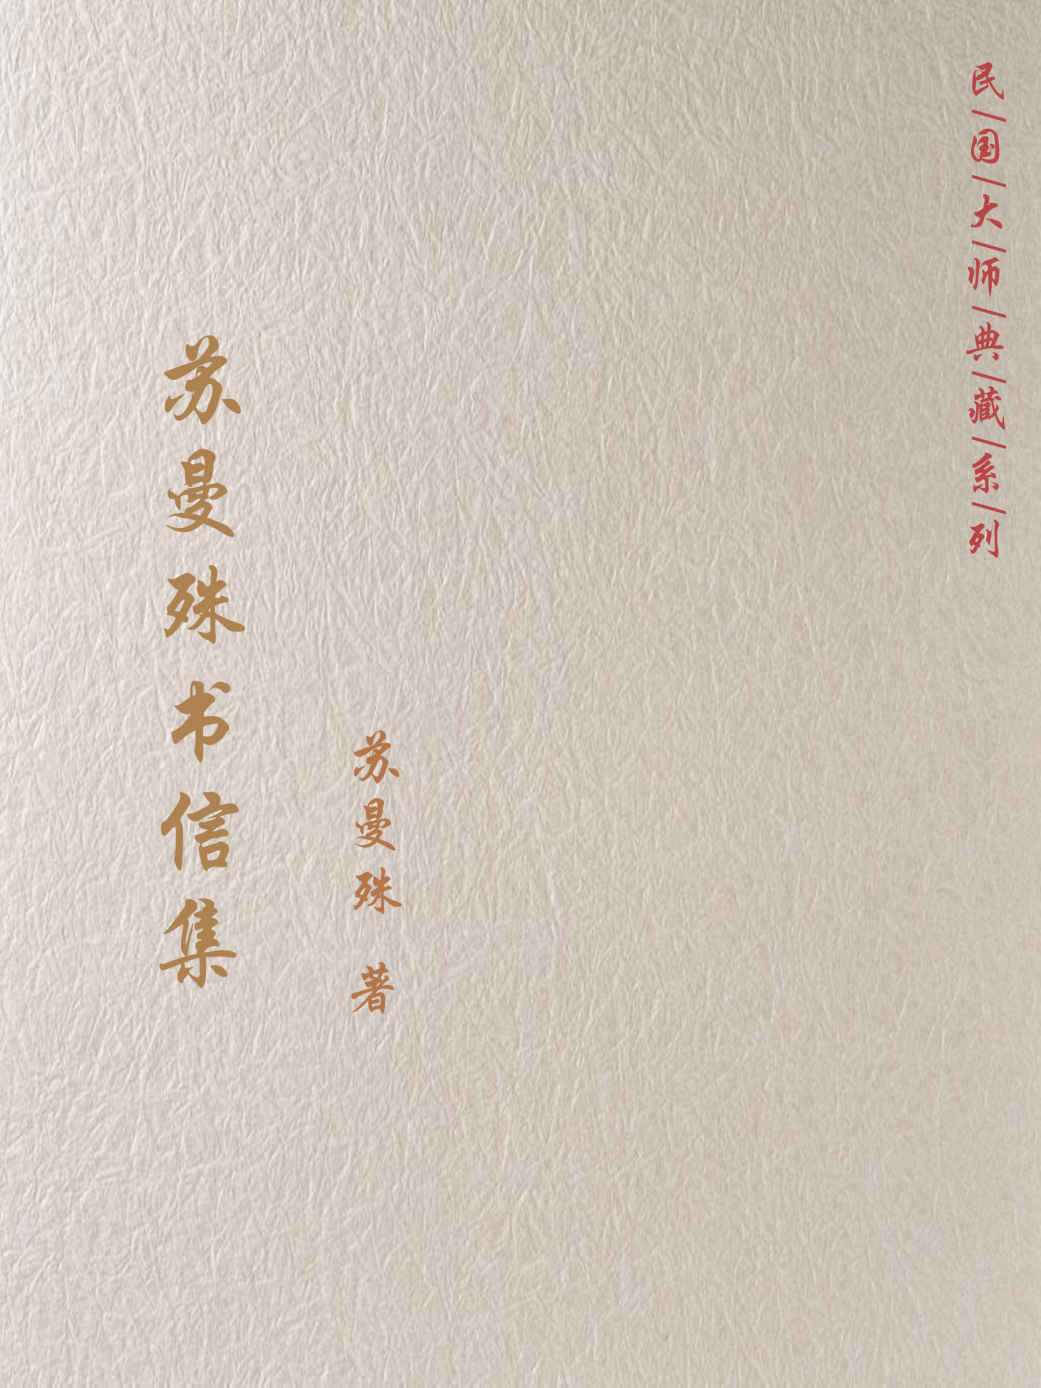 民/国/大/师/典/藏/系/列
苏曼殊书信集
苏曼殊 著